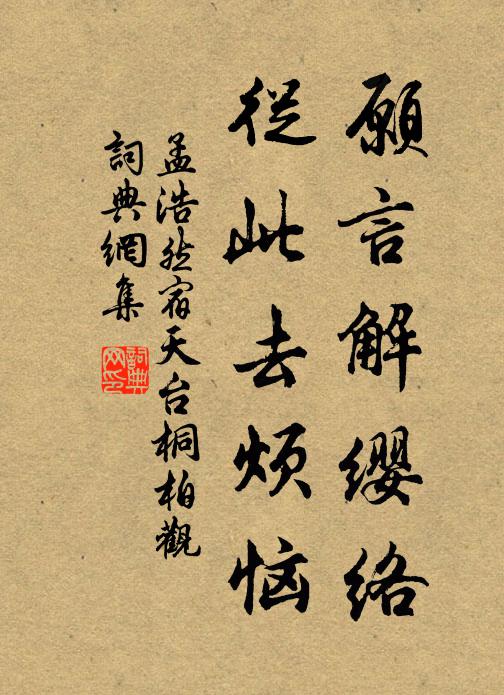 願言解缨络
從此去烦恼
孟浩然宿天台桐柏觀
詞典網集
詞典網印